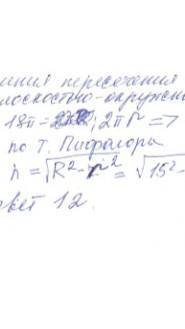 иния пересечения
лоскостью-окружн
18π= 2πr =>
по Т. Пифагора
h = √R²-r² = √15²-
овет 12.